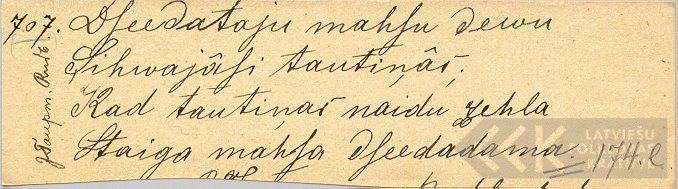 707. Dseedataju mahsu dewu
Sihwajâsi tautiņâs;
Kad tautiņas naidu zehla
Staiga mahsa dseedadama. 174.l
J Taurm. Rub.
LATVIEŠU